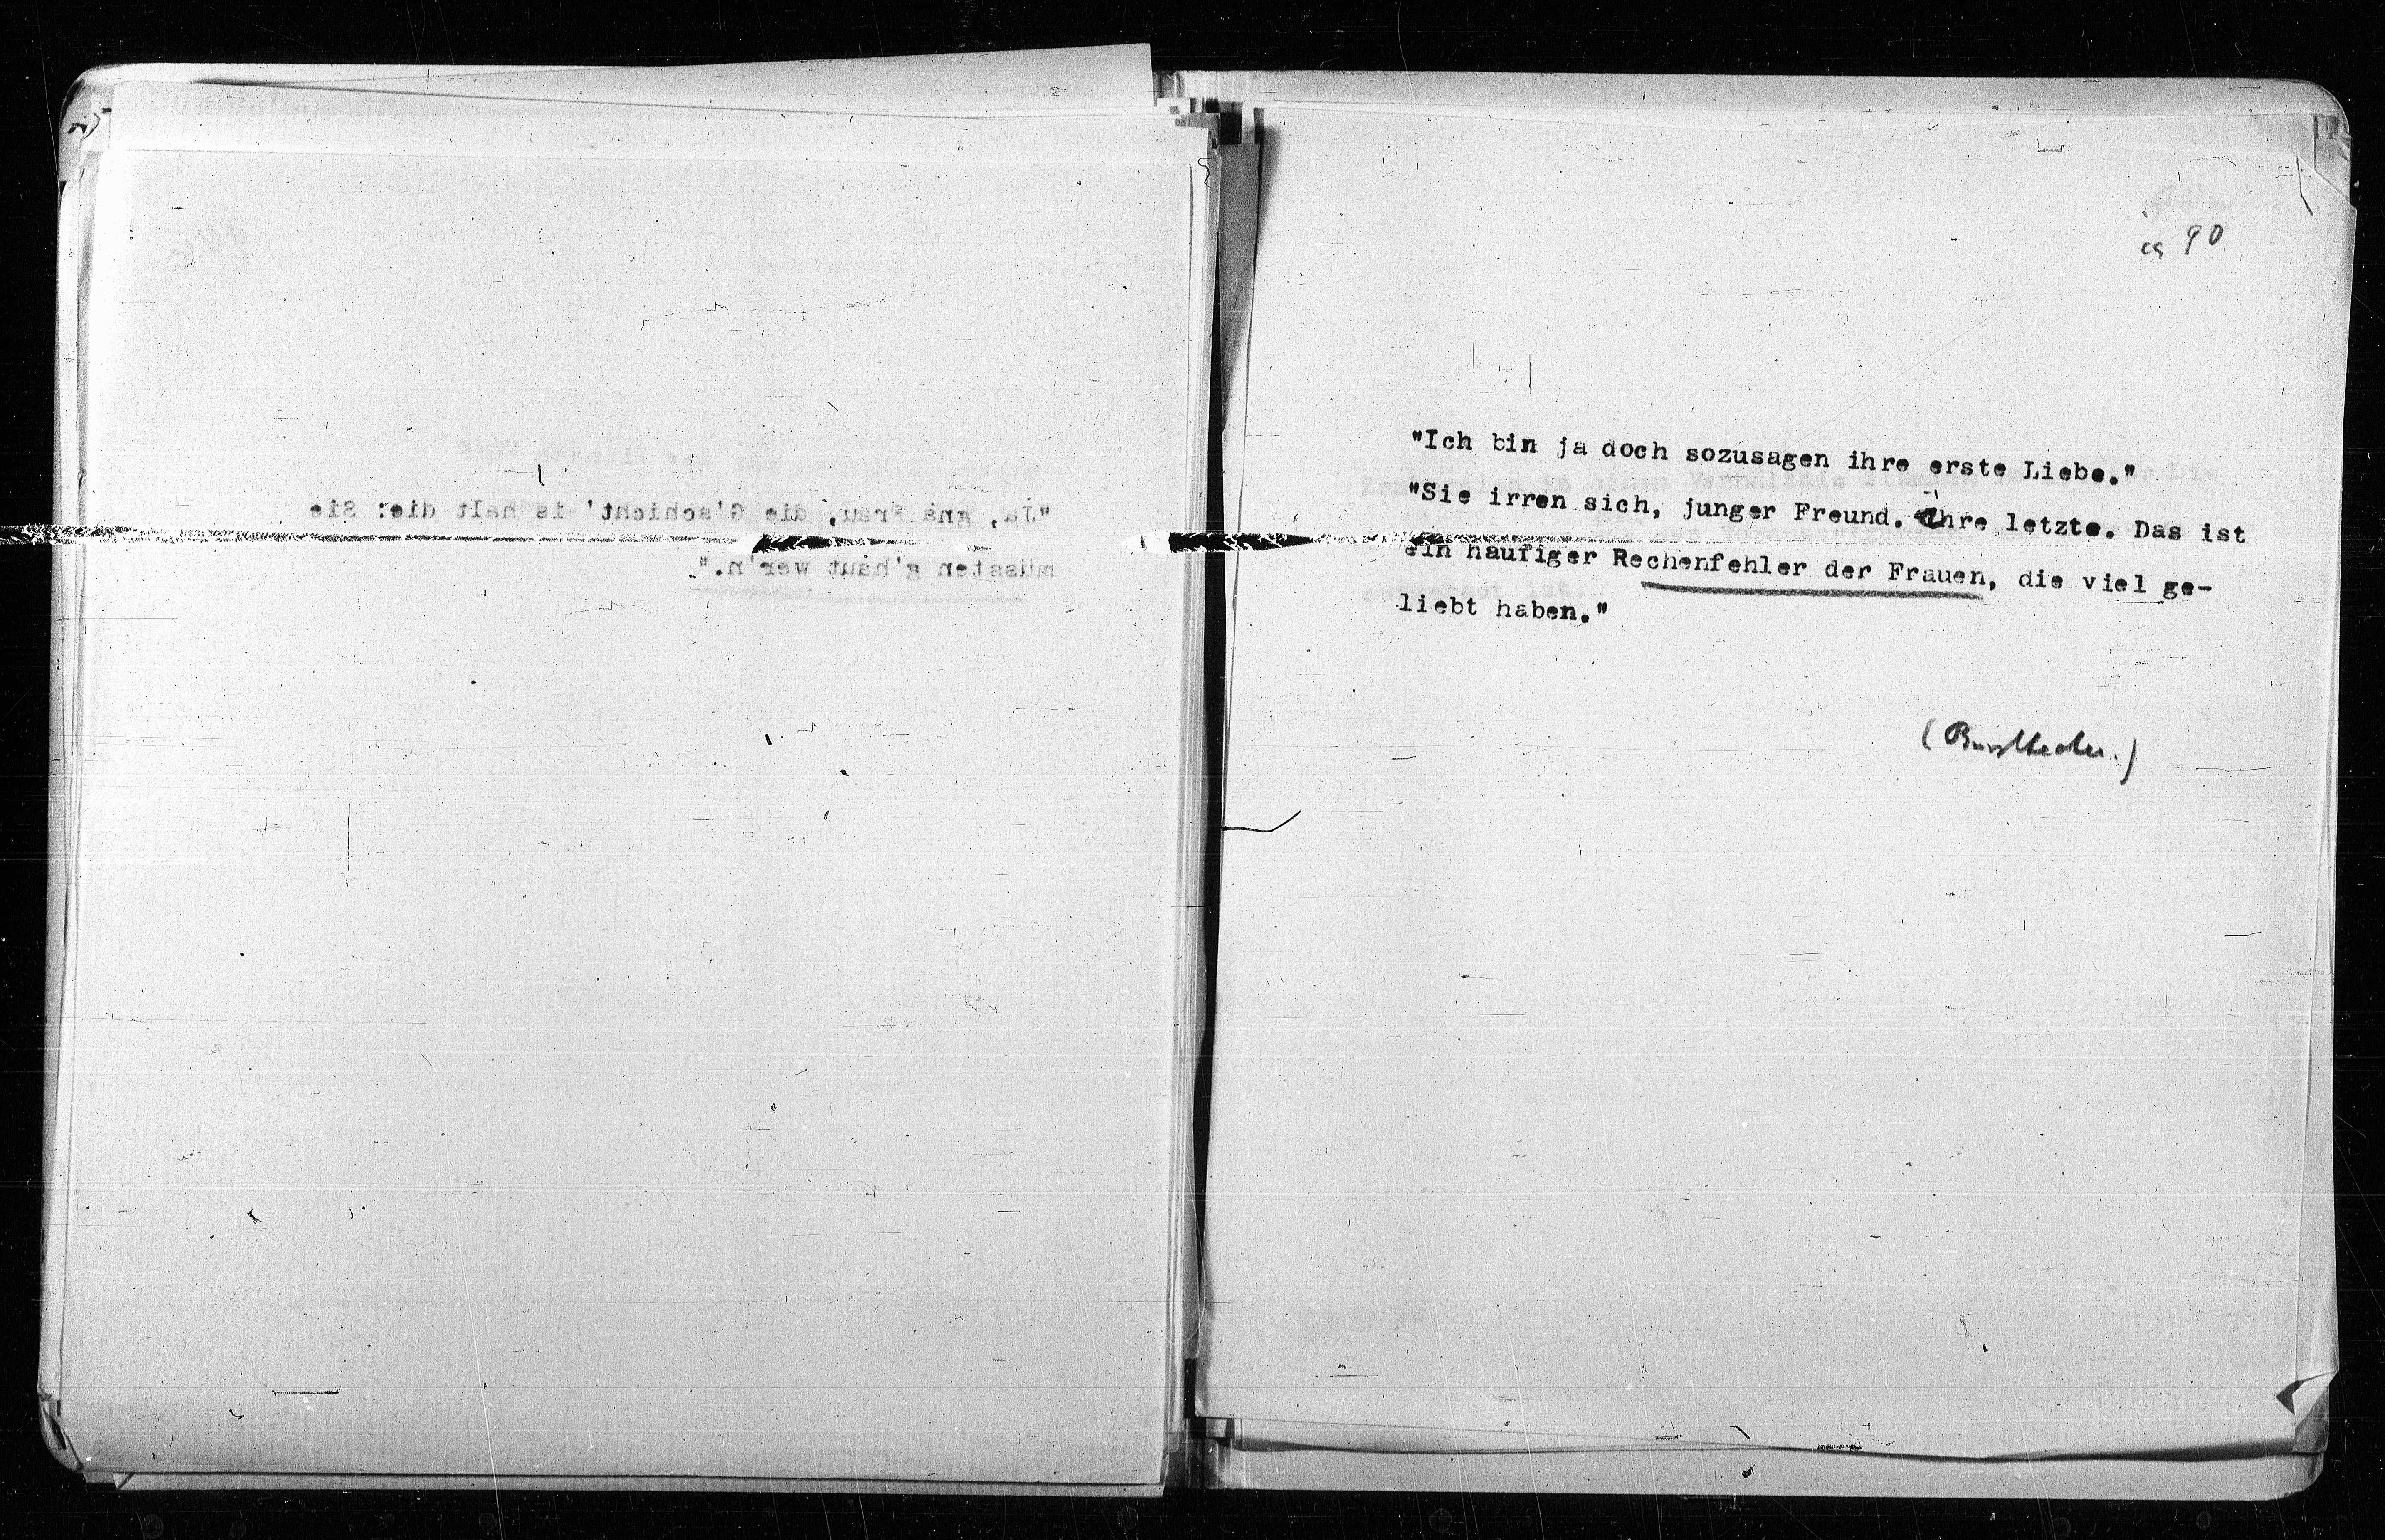 "Ja, gnä Frau, die G'schicht' is halt die: Sie
müssten g'haut wer'n."
ca 90
"Ich bin ja doch sozusagen ihre erste Liebe."
"Sie irren sich, junger Freund. ihre letzte. Das ist
ein häufiger Rechenfehler der Frauen, die viel ge-
liebt haben."